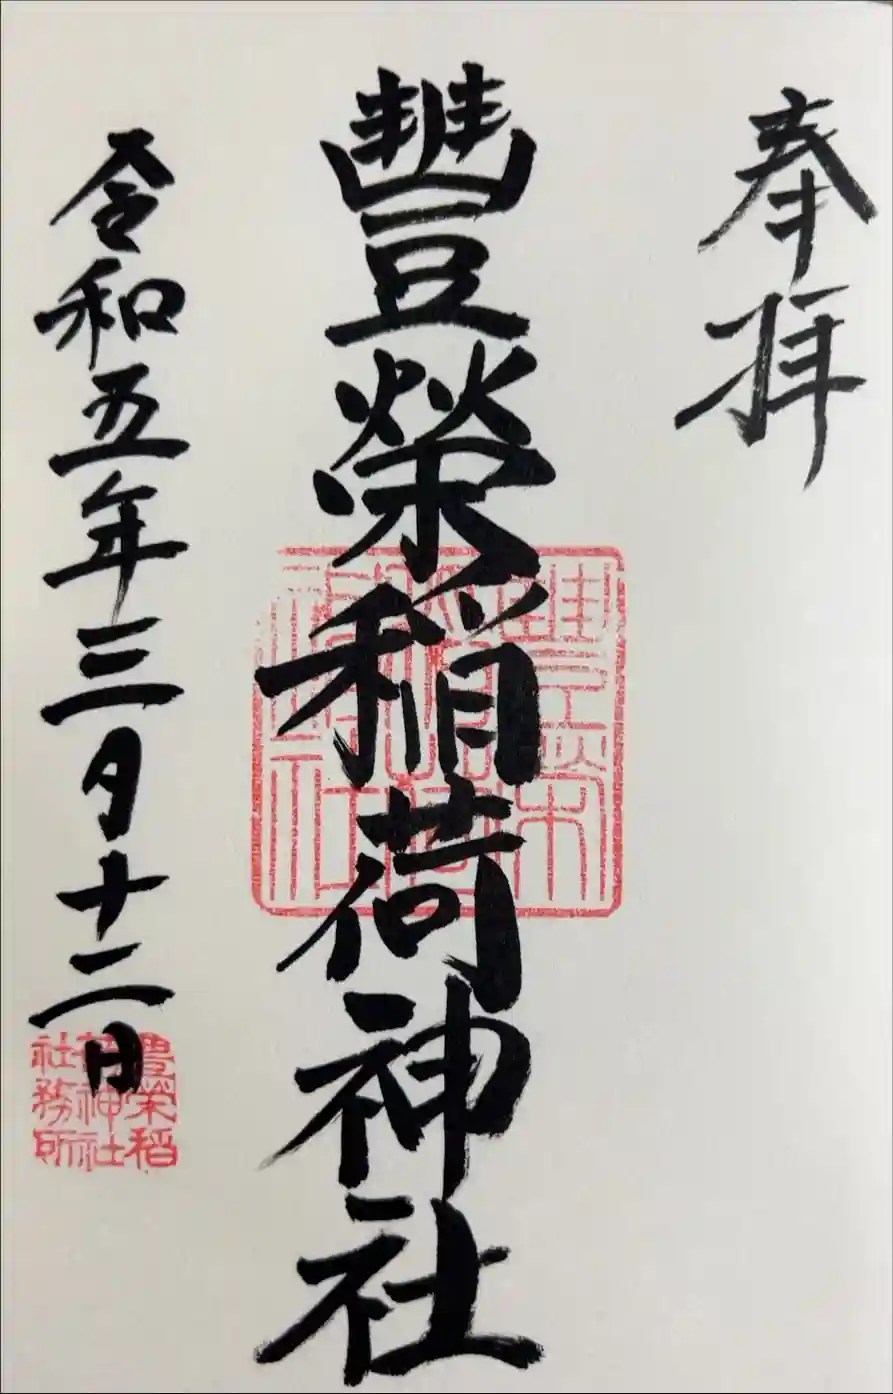 奉拝
豐榮稲荷神社
豊榮
稲荷
神社
令和五年三月十二日
豊榮稲
荷神社
社務所